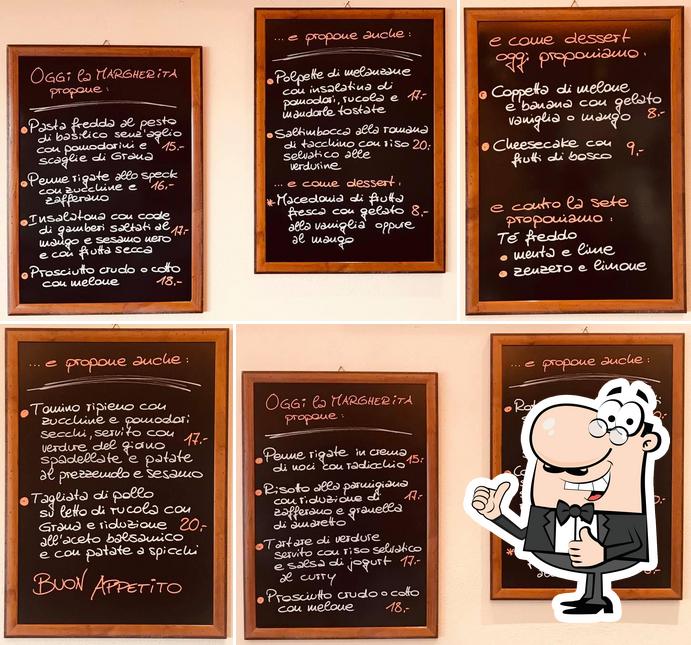 OGGI la MARGHERITA
propone:
Pasta fredda al pesto
di basilico senz'aglio
con pomodorini e 15.-
scaglie di Grana
Penne rigate allo speck
con zucchine e 16.-
zafferano
Insalatona con code
di gamberi saltati al 17.-
mango e sesamo nero
e con frutta secca
Prosciutto crudo o cotto
con melone 18.-
... e propone anche:
Polpette di melanzane
con insalatina di
pomodori, rucola e 17.-
mandorle tostate
Saltimbocca alla romana
di tacchino con riso 20.-
selvatico alle
verdurine
... e come dessert.
*Macedonia di frutta
fresca con gelato 8.-
alla vaniglia oppure
al mango
e come dessert
oggi proponiamo:
Coppetta di melone
e banana con gelato
vaniglia o mango 8.-
Cheesecake con 9,-
frutti di bosco
e contro la sete
proponiamo:
Té freddo
menta e lime
zenzero e limone
... e propone anche:
Tomino ripieno con
zucchine e pomodori
secchi, servito con 17.-
verdure del giorno
spadellate e patate
al prezzemolo e sesamo
Tagliata di pollo
su letto di rucola con
Grana e riduzione 20,-
all'aceto balsamico
e con patate a spicchi
BUON APPETITO
OGGI la MARGHERITA
propone:
Penne rigate in crema 15.-
di noci con radicchio
Risotto alla parmigiana
con riduzione di 17.-
zafferano e granella
di amaretto
Tartare di verdure
servito con riso selvatico
e salsa di jogurt 17.-
al curry
Prosciutto crudo o cotto
con melone 18.-
... e propone anche: